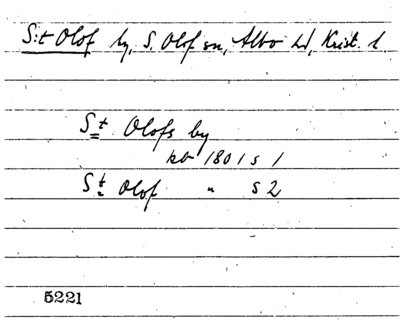 S:t Olof by, S. Olof sn, Albo hd, Krist. l.
S:t Olofs by
kb 1801 s 1
S:t Olof " s 2
5221